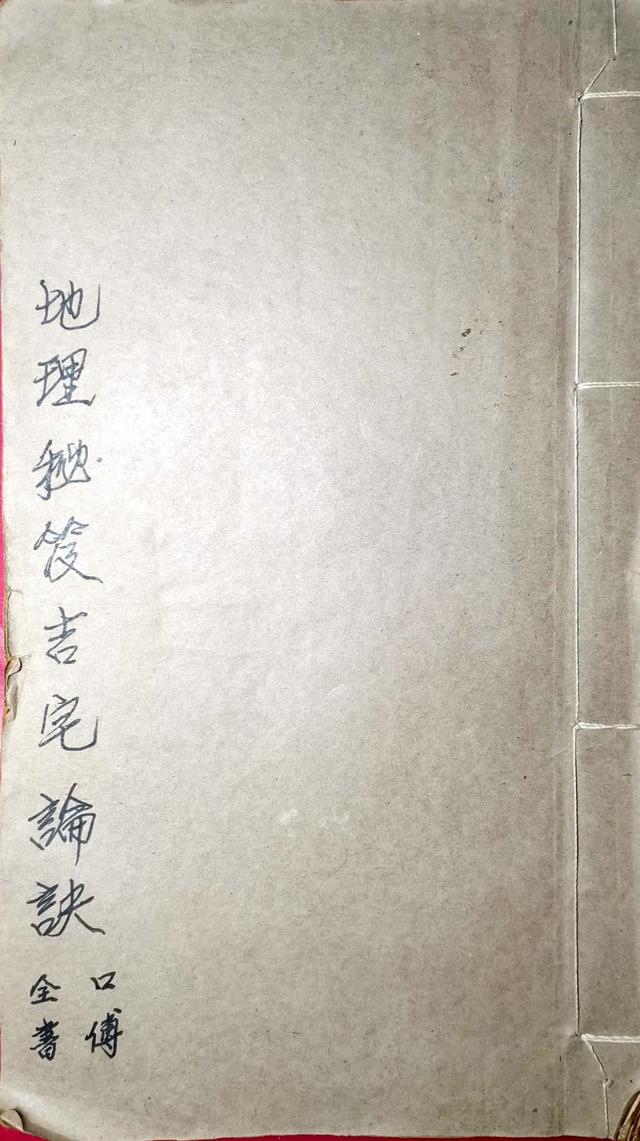 地理秘笈吉宅論訣
口傅
全書